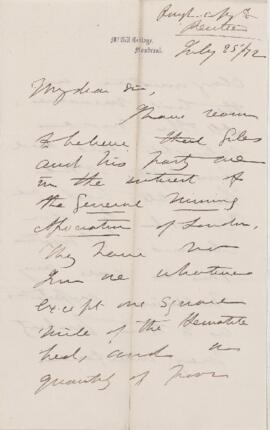 McGill College,
Montreal.
July 25/72
My dear Sir,
I have reason
to believe that Giles
and his party are
in the interest of
the General Mining
Association of London.
They have no
whatever
except one square
mile of the Hematite
bed, and a
quantity of poor